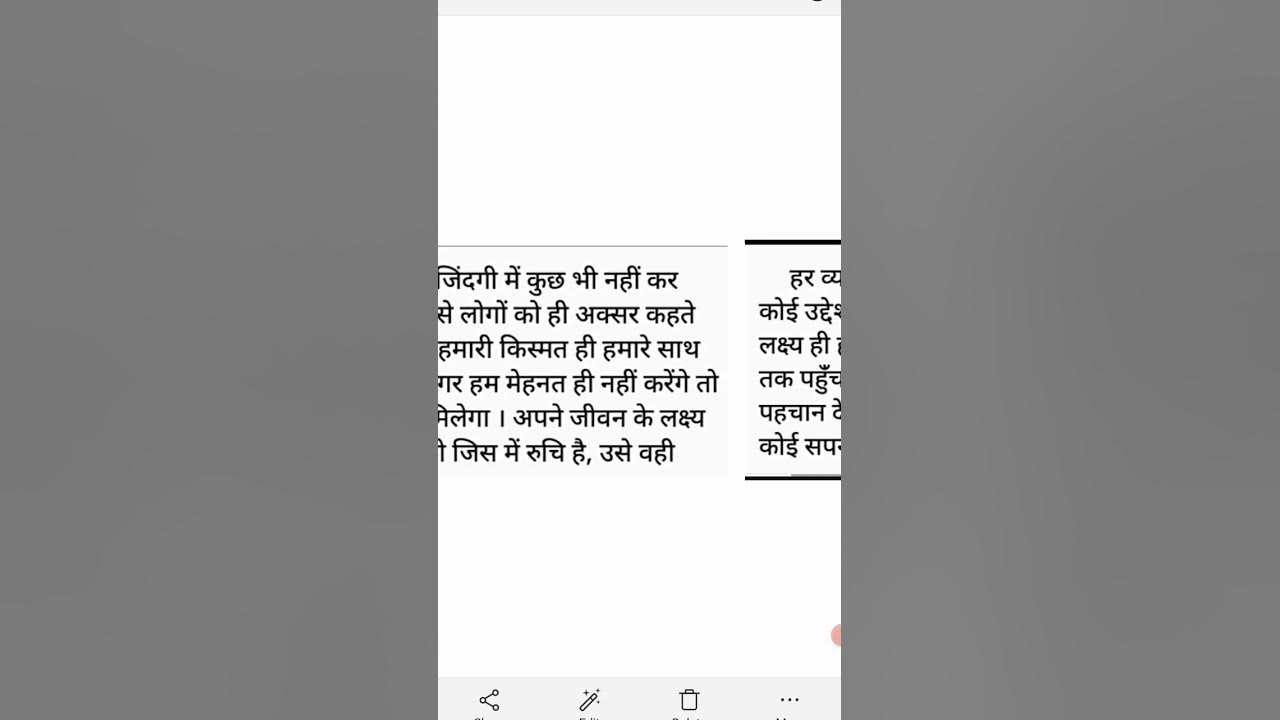 जिंदगी में कुछ भी नहीं कर
से लोगों को ही अक्सर कहते
हमारी किस्मत ही हमारे साथ
गर हम मेहनत ही नहीं करेंगे तो
मिलेगा । अपने जीवन के लक्ष्य
जिस में रुचि है, उसे वही
हर
कोई
लक्ष्य ही
तक
पहचान
कोई